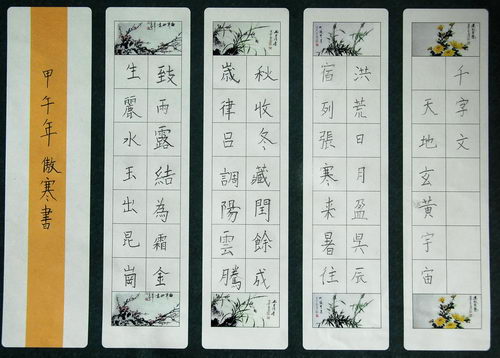 千字文
天地玄黃宇宙
洪荒日月盈昃辰
宿列張寒来暑往
秋收冬藏閏餘成
歳律呂調陽雲騰
致雨露結為霜金
生麗水玉出昆崗
甲午年 傲寒書